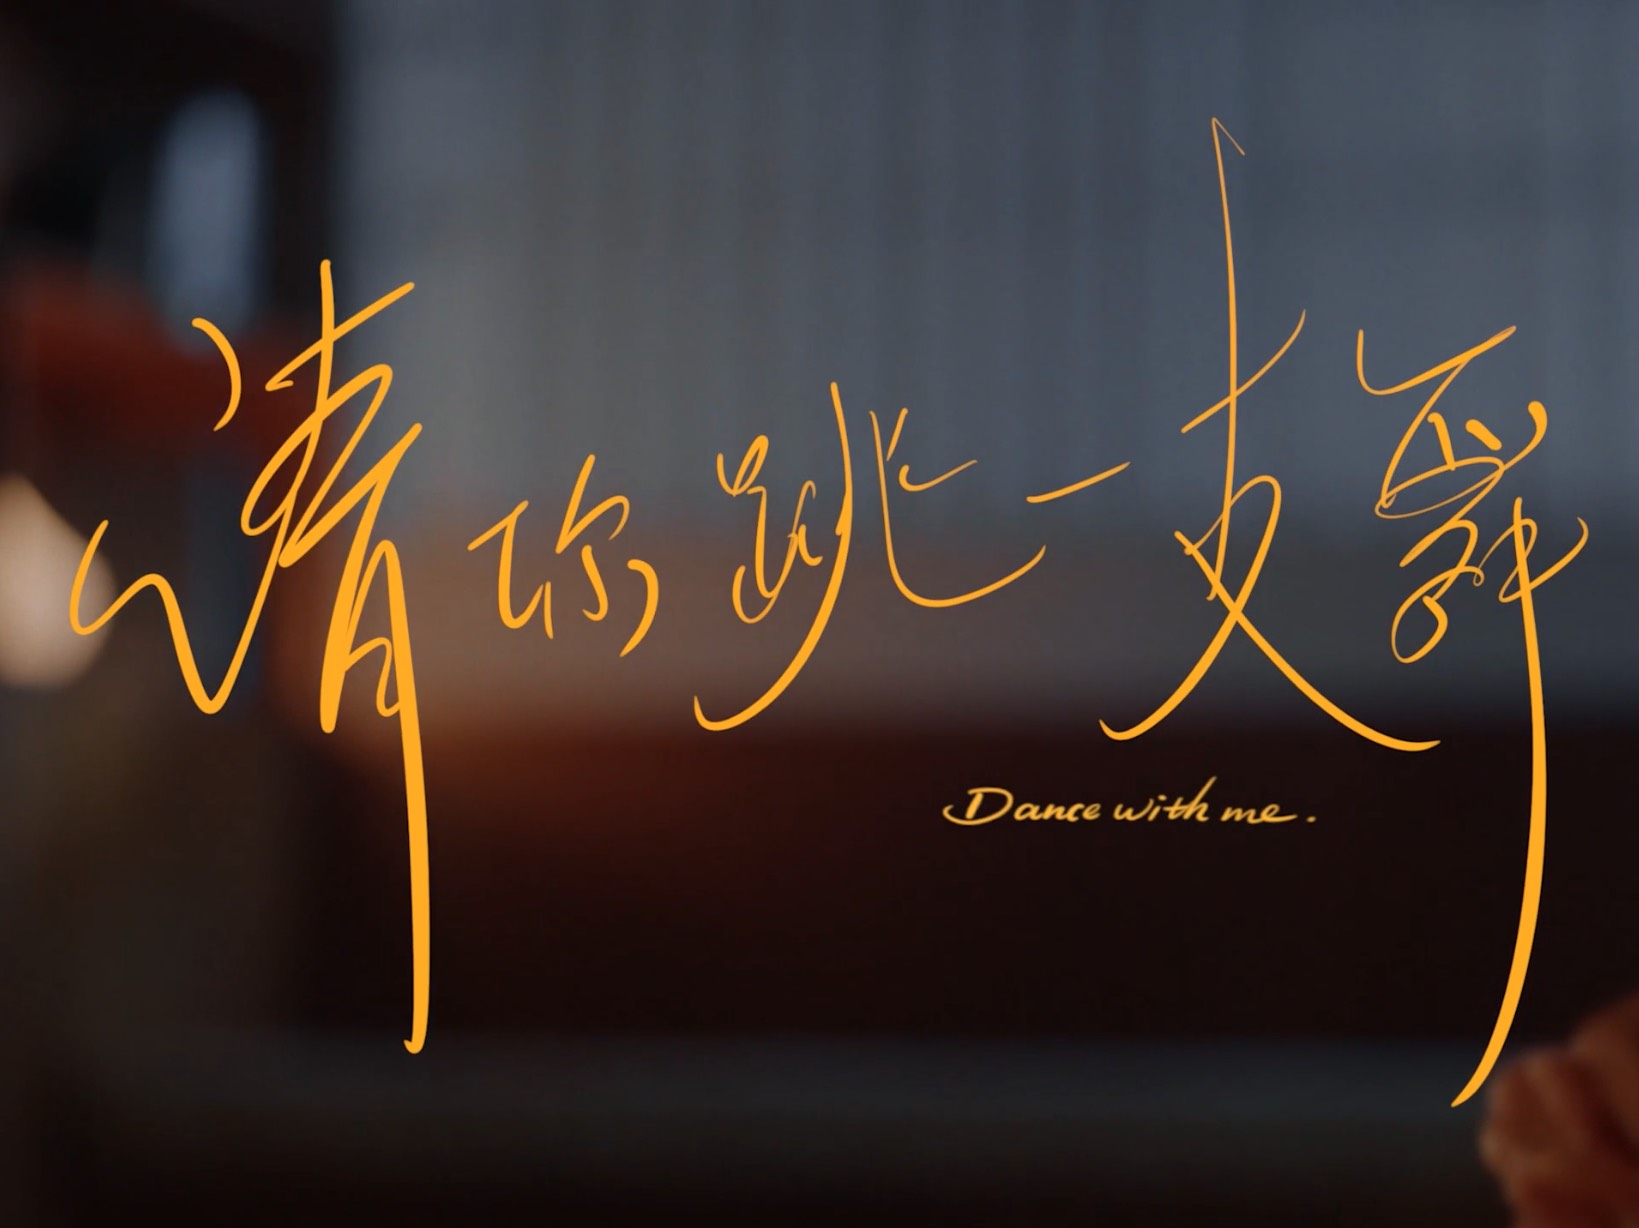 请你跳一支舞
Dance with me.